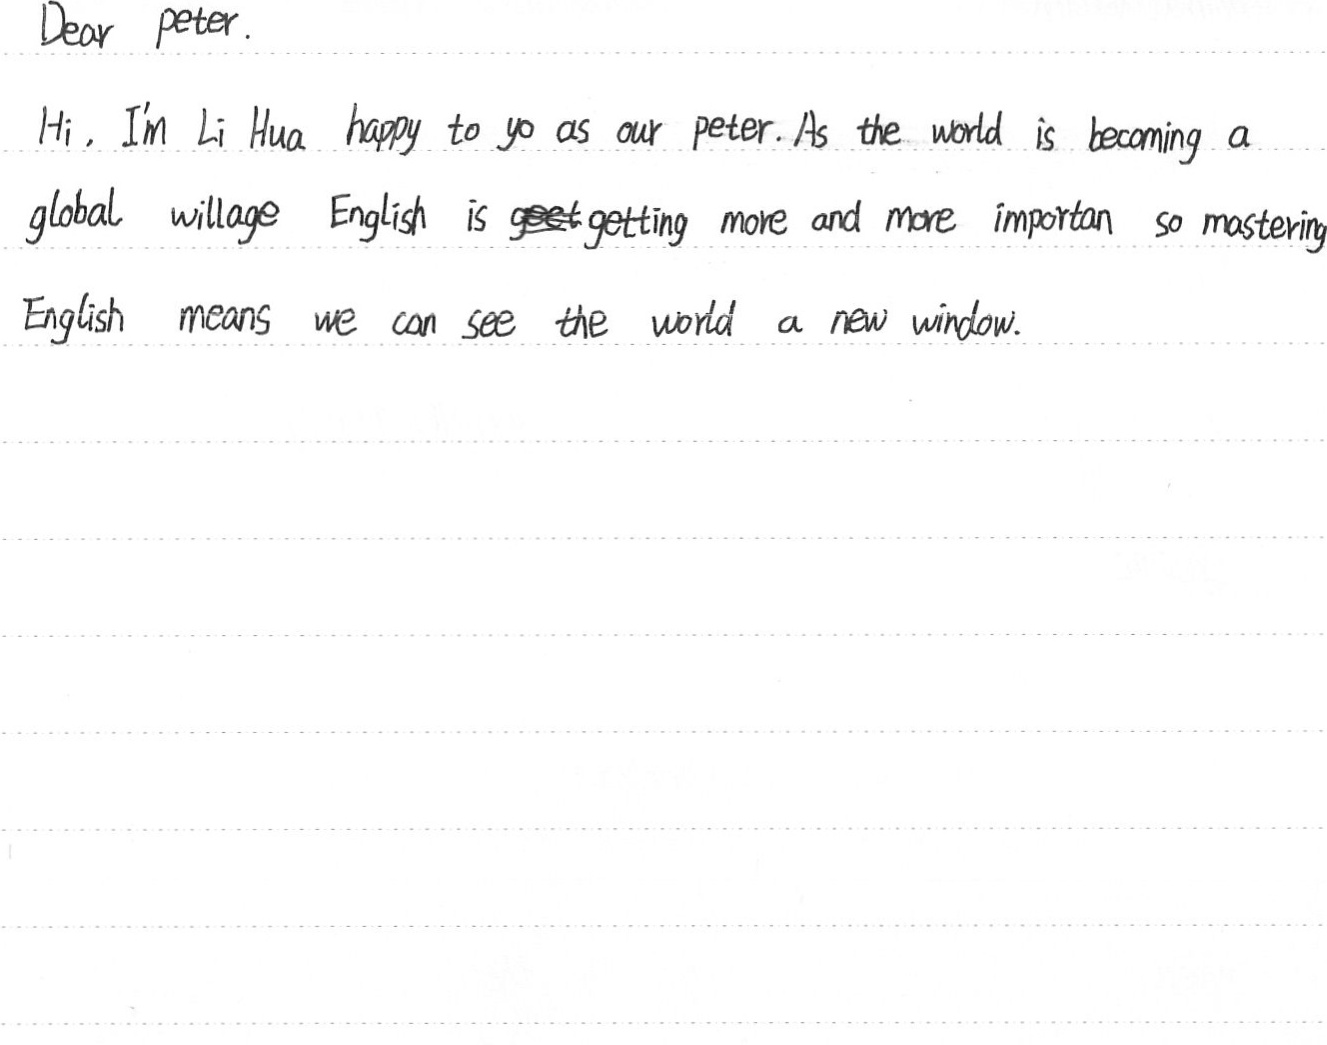 Dear peter.
Hi, I'm Li Hua happy to yo as our peter. As the world is becoming a
global willage English is getting more and more importan so mastering
English means we can see the world a new window.